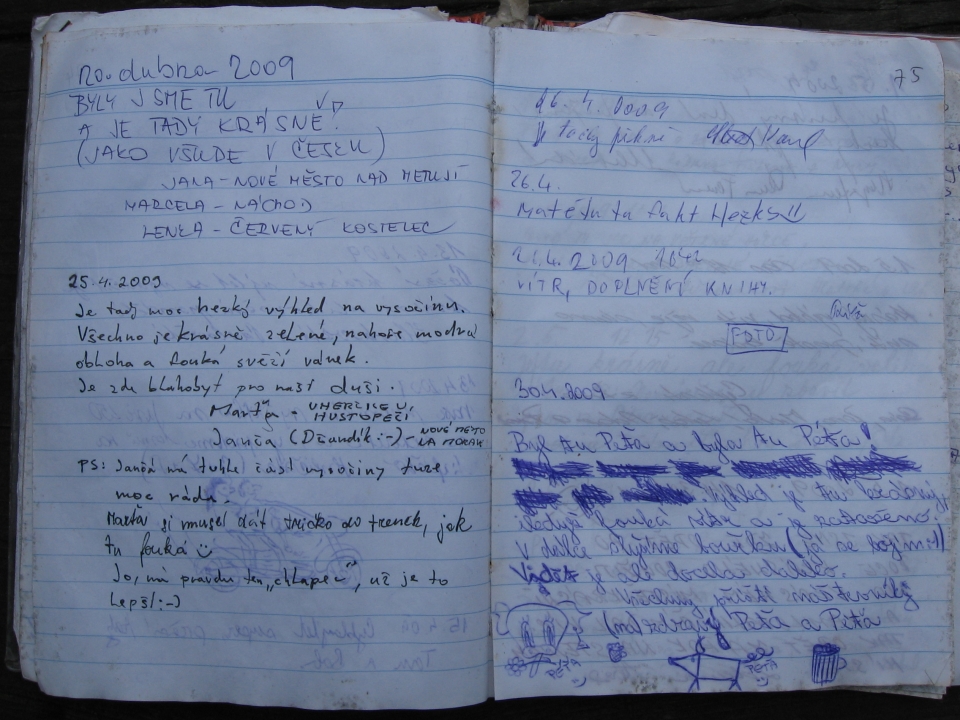 20. dubna 2009
BYLY JSME TU
A JE TADY KRÁSNĚ!
(JAKO VŠUDE V ČESKU)
JANA - NOVÉ MĚSTO NAD METUJÍ
MARCELA - NÁCHOD
LENKA - ČERVENÝ KOSTELEC
25.4.2009
Je tady moc hezký výhled na vysočinu.
Všechno je krásně zelené, nahoře modrá
obloha a fouká svěží vánek.
Je zde blahobyt pro naší duši.
Marťa - UHERČICE U
HUSTOPEČÍ
Janča (Džundík :-) - NOVÉ MĚSTO
NA MORAV
PS: Janča má tuhle část vysočiny fuze
moc ráda.
Marťa si musel dát tričko do trenek, jak
tu fouká
Jo, má pravdu ten „chlapec", už je to
lepší :-)
75
26. 4. 2009
Je tady pěkně
26.4.
Matéšu tu fakt Hezky!!
2009 1642
VÍTR, DOPLNĚNÍ KNIHY.
FOTO
30.4.2009
Byl tu Péťa a byla tu Péťa!
Výhled je tu
fouká a je zataženo
V dálce slyšíme bouřku (já se bojím!)
je ale docela daleko.
Všechny příští návštěvníky
(na)zdraví Péťa a Péťa
PÉŤA
PÉŤA